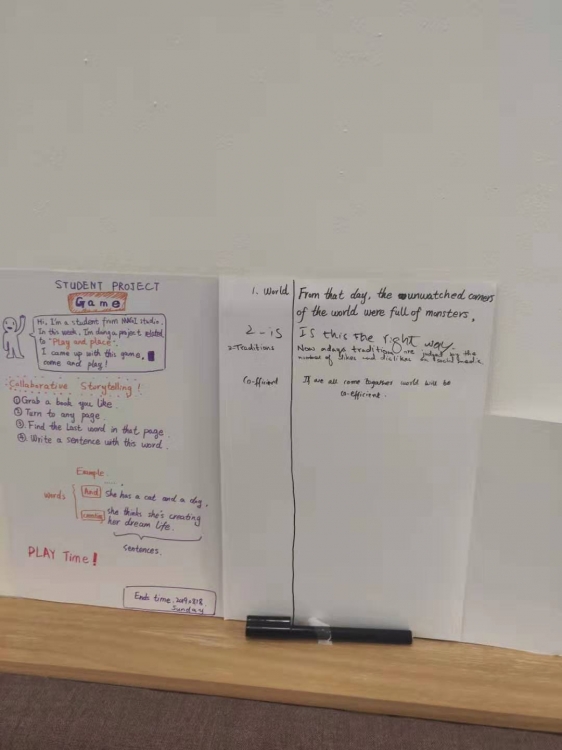 STUDENT PROJECT
Game
Hi, I'm a student from studio.
In this week, I'm doing a project related
to "Play and place".
I came up with this game,
come and play!
Collaborative Storytelling!
① Grab a book you like.
② Turn to any page.
③ Find the last word in that page.
④ Write a sentence with this word.
Example
words
And
she has a cat and a dog.
creating
she thinks she's creating
her dream life.
sentences.
PLAY Time!
Ends time: 2019.8.18
Sunday
1. World
From that day, the unwatched corners
of the world were full of monsters.
2 - is
Is this the right way.
2-Traditions
Now adays traditions are judged by the
number of likes and dislikes on social media
Co-efficient
If we all come together world will be
co-efficient.